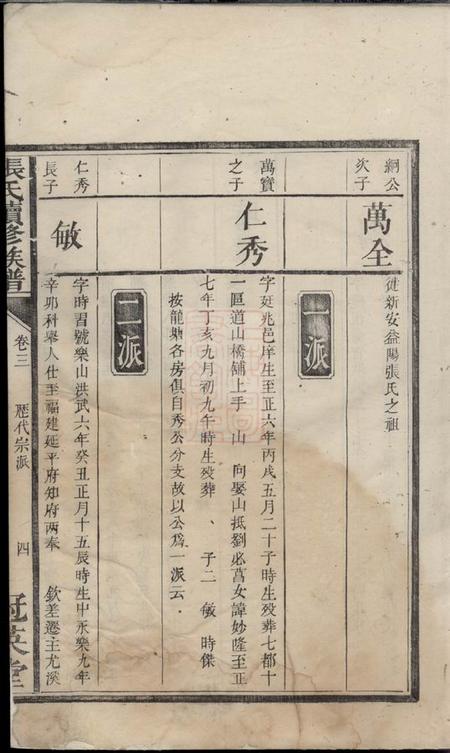 綱公次子
萬全
徙新安益陽張氏之祖
一派
萬寶之子
仁秀
字廷兆邑庠生至正六年丙戌五月二十子時生歿葬七都十
一區道山橋鋪上手 山 向娶山抵劉必萬女諱妙隆至正
七年丁亥九月初九午時生歿葬 、 子二 敏 時傑
按龍塘各房俱自秀公分支故以公爲一派云
二派
仁秀長子
敏
字時習號樂山洪武六年癸丑正月十五辰時生中永樂九年
辛卯科舉人仕至福建延平府知府两奉 欽差遷主尤溪
張氏續修族譜
卷三 歷代宗派 四
冠英堂